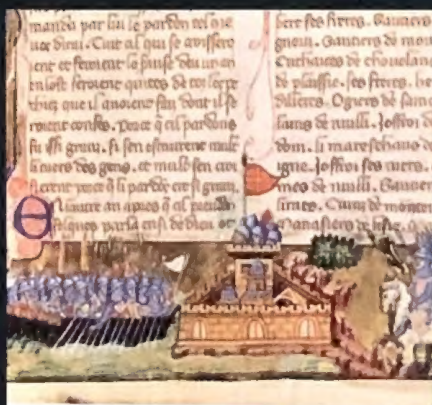 manda par lui le pardon tel que
uos dirai. Tuit cil qui se croisseroi
ent et feroient le seruise deu un an
en lost seroient quittes de toz les pe
chiez que il auoient faiz dont il se
roient confes. Porce q cil pardons
fu issi granz. si sen esmurent mult
li cuers des genz. et mult sen croi
sierent porce q li pardons ere si granz.
En lautre an apres q cil preudom
folques parla ensi de dieu ot
bert ses freres. Gautiers
gnori. Gautiers de mon
Eustaices de chouelans
de plaissie. ses freres. he
dillieres. Ogiers de sain
lains de nuilli. Joffroi de
doin. li mareschaus de
igne. Joffroi ses nies.
mes de nuilli. Gautier
linies. Cuins de montoi
Manasiers de lisle.